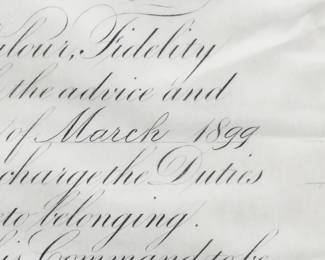 alour, Fidelity
the advice and
of March 1899
charge the Duties
eto belonging.
his Command to be